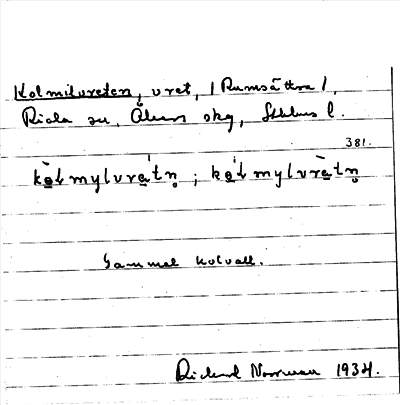 Kolmilvreten, vret, (Rumsättra),
Riala sn, Åkers skg, Sthlms l.
381.
kòḷmylvrètn̥; kóḷmylvrètn̥
Gammal kolvall.
Rickard Norrman 1934.